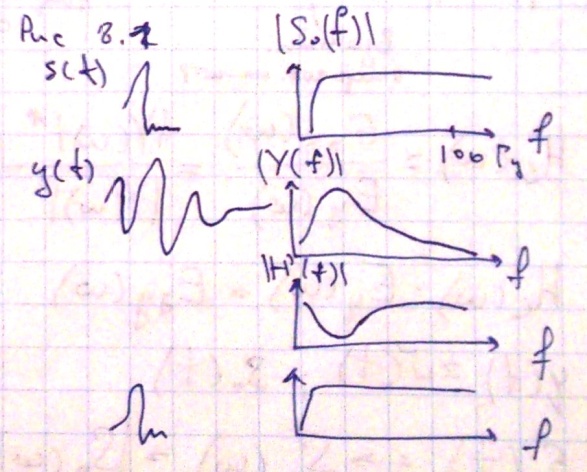 Рис 8.1
|S₀(f)|
s(t)
f
100 Гц
y(t)
|Y(f)|
f
|H'(f)|
f
f